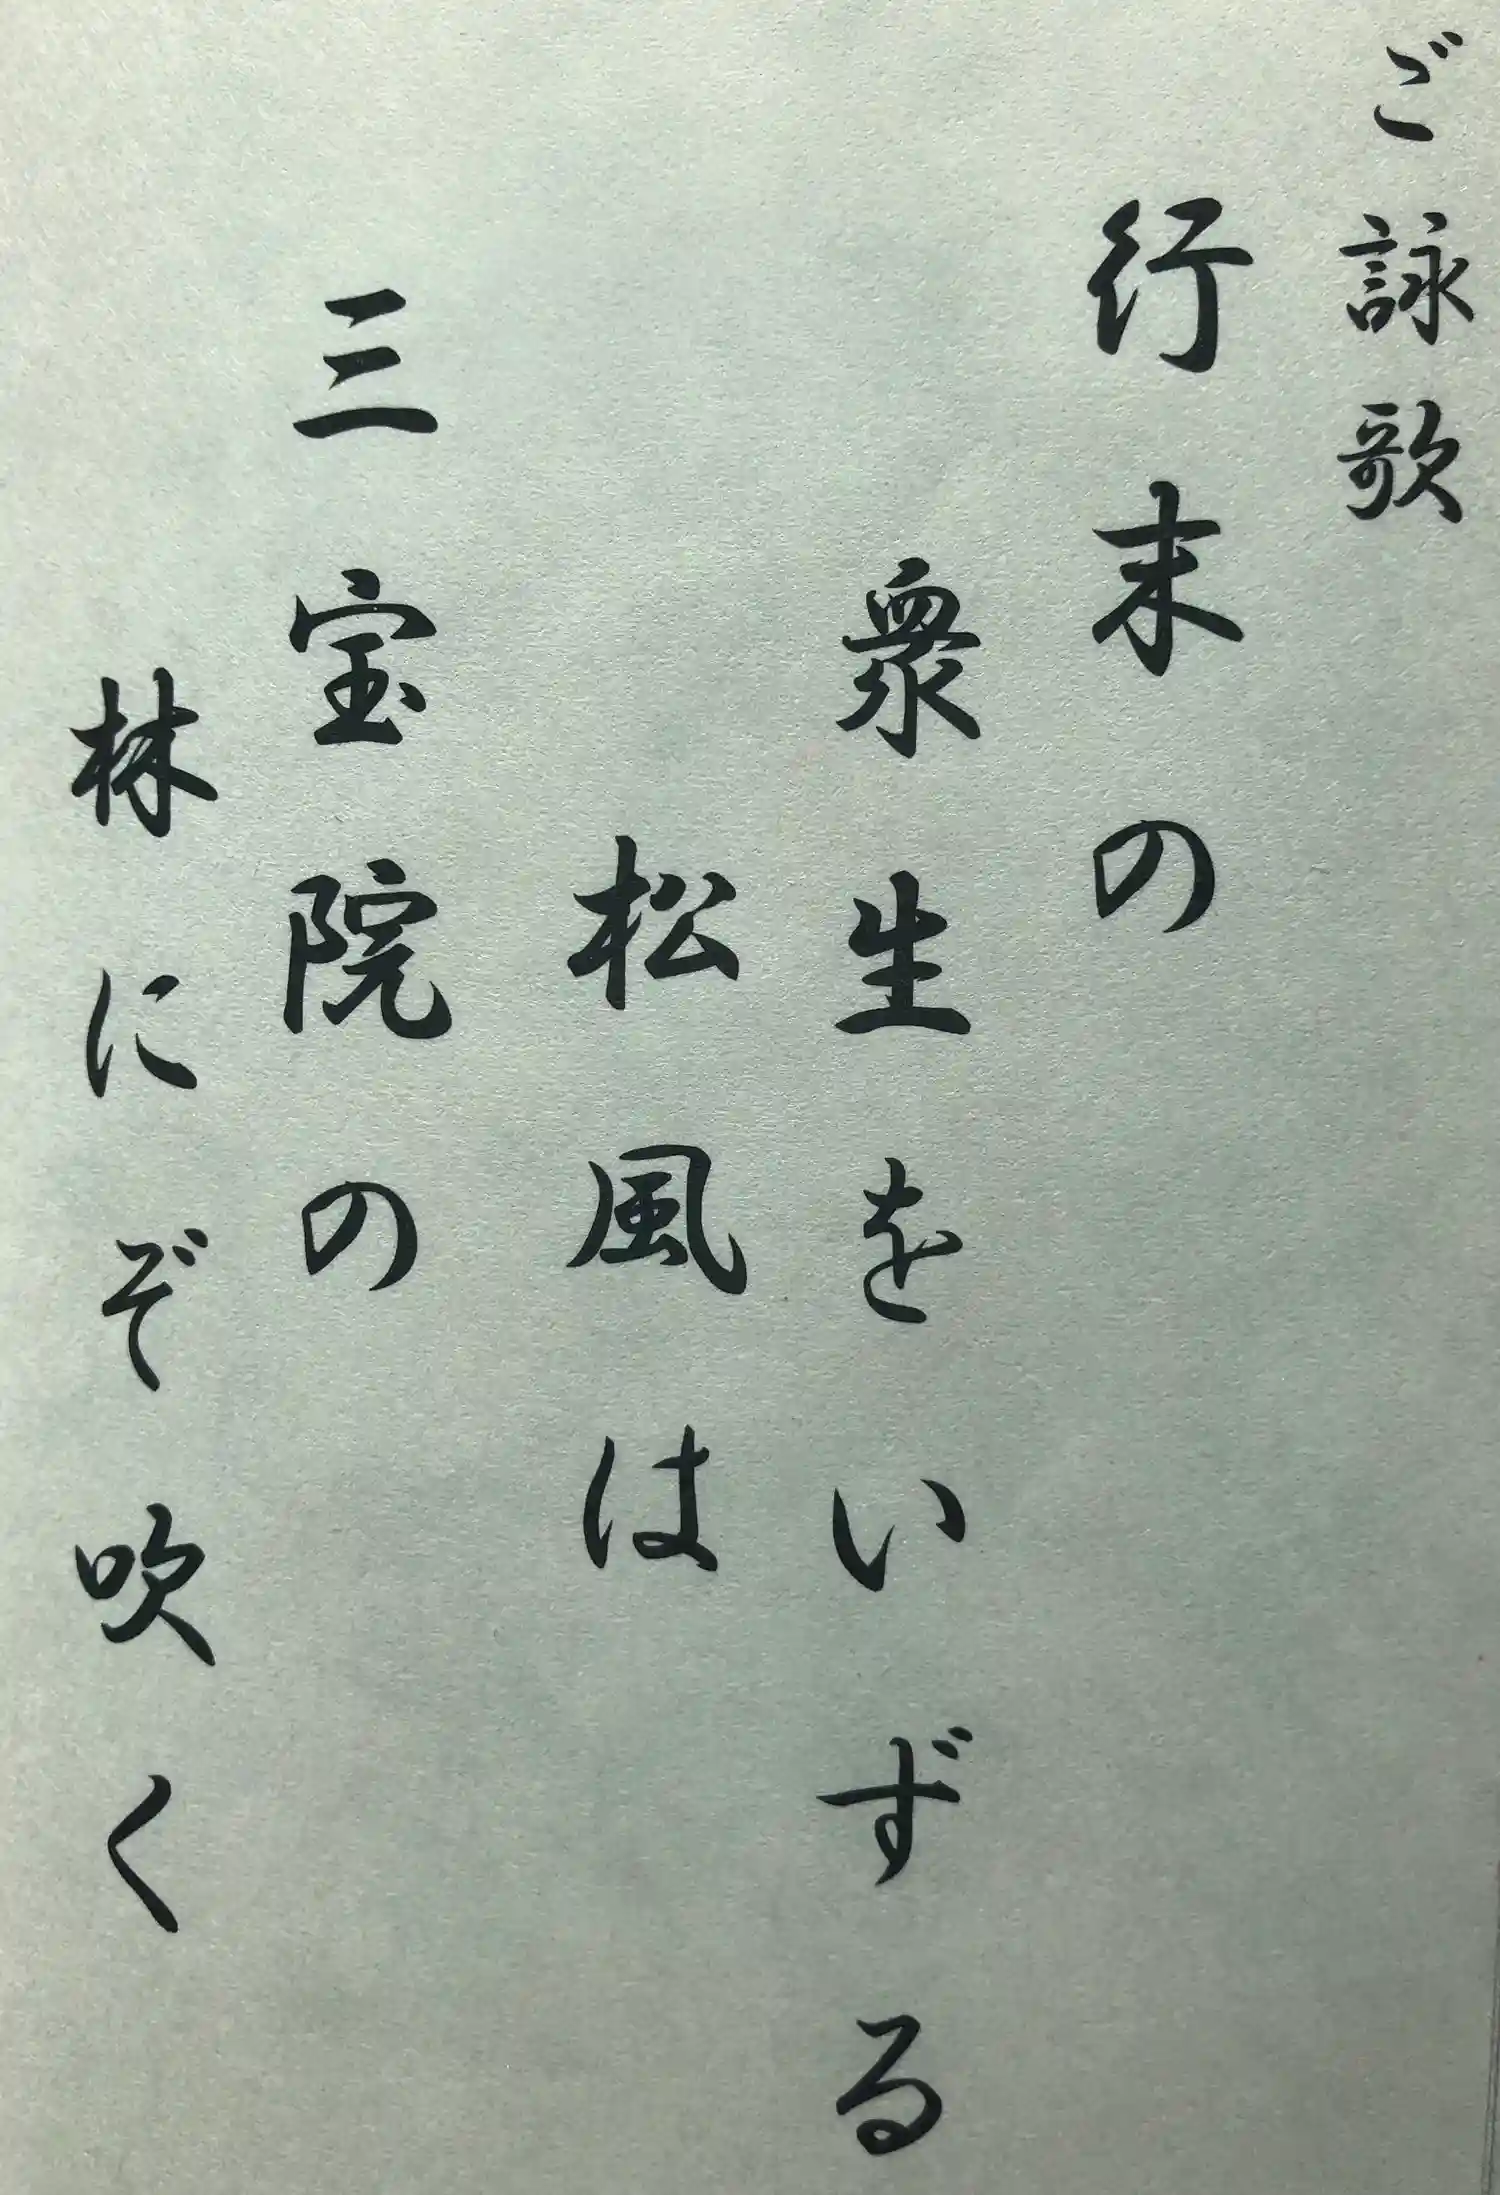 ご詠歌
行末の
衆生をいずる
松風は
三宝院の
林にぞ吹く